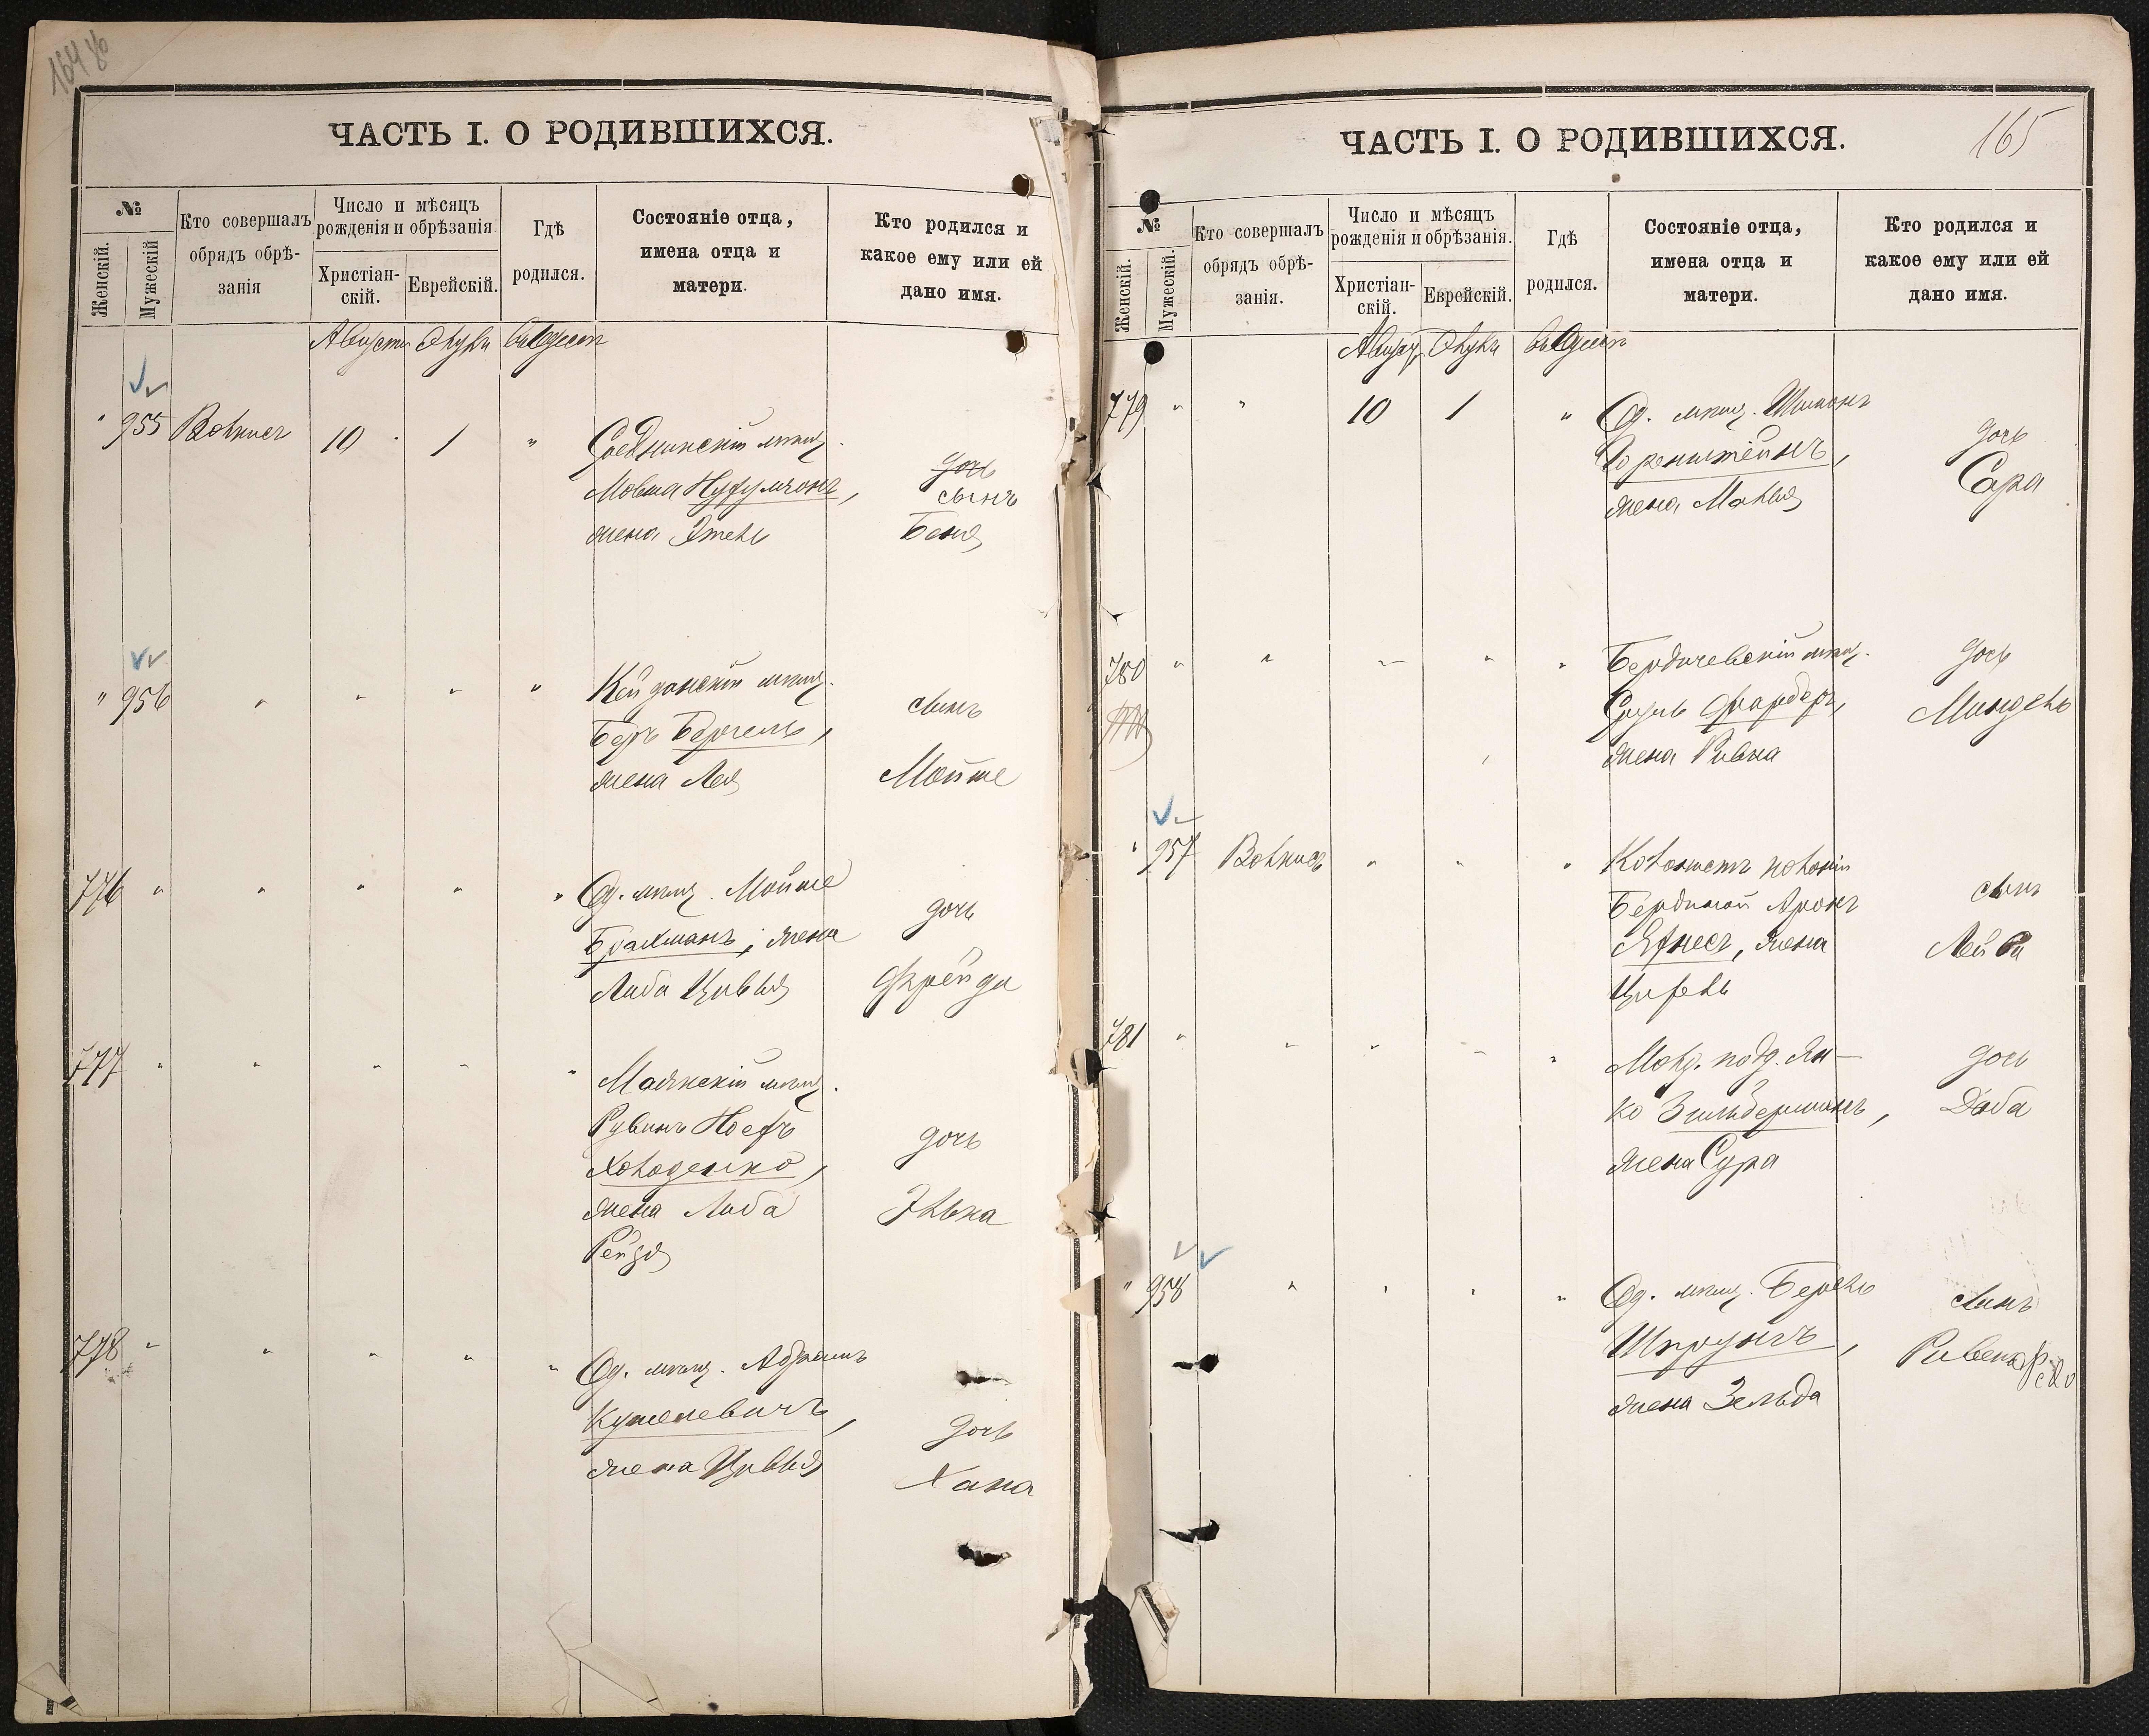 164 об
ЧАСТЬ I. О РОДИВШИХСЯ.
№
Женскій.
Мужескій
Кто совершалъ
обрядъ обрѣ-
занія
Число и мѣсяцъ
рожденія и обрѣзанія
Христіан-
скій.
Еврейскій.
Гдѣ
родился.
Состояніе отца,
имена отца и
матери.
Кто родился и
какое ему или ей
дано имя.
Августъ Элулъ въ Одессѣ
" 955 Волкисъ 10 1 "
мѣщ.
Мовша
жена Этель
дочь
сынъ
Беня
" 956 " " " "
Кейданскій мѣщ.
Беръ Бергель,
жена Лея
сынъ
Мойше
776 " " " " "
Од. мѣщ. Мойше
Брахманъ, жена
Либа Цивья
дочь
Фрейда
777 " " " " "
Маякскій мѣщ.
Рувинъ Іосфъ
Холоденко,
жена Либа
Рейзя
дочь
Элька
778 " " " " "
Од. мѣщ. Абрамъ
Кушелевичъ,
жена Цивья
дочь
Хана
165
ЧАСТЬ I. О РОДИВШИХСЯ.
№
Женскій.
Мужескій.
Кто совершалъ
обрядъ обрѣ-
занія.
Число и мѣсяцъ
рожденія и обрѣзанія.
Христіан-
скій.
Еврейскій.
Гдѣ
родился.
Состояніе отца,
имена отца и
матери.
Кто родился и
какое ему или ей
дано имя.
Августъ Элулъ въ Одессѣ
779 " " 10 1 "
Од. мѣщ. Шимонъ
Горенштейнъ,
жена Малья
дочь
Сара
780 " " " " "
Бердичевскій мѣщ.
Сруль Фарберъ,
жена Ривка
дочь
Миндель
" 957 Волкисъ " " "
Колонистъ колоніи
Аронъ
жена
Цирель
сынъ
Лейба
781 " " " " "
Молд. подд. Ян-
ко Зильберманъ,
жена Сура
дочь
Доба
" 958 " " " "
Од. мѣщ. Берель
Шпрунгъ,
жена Зельда
сынъ